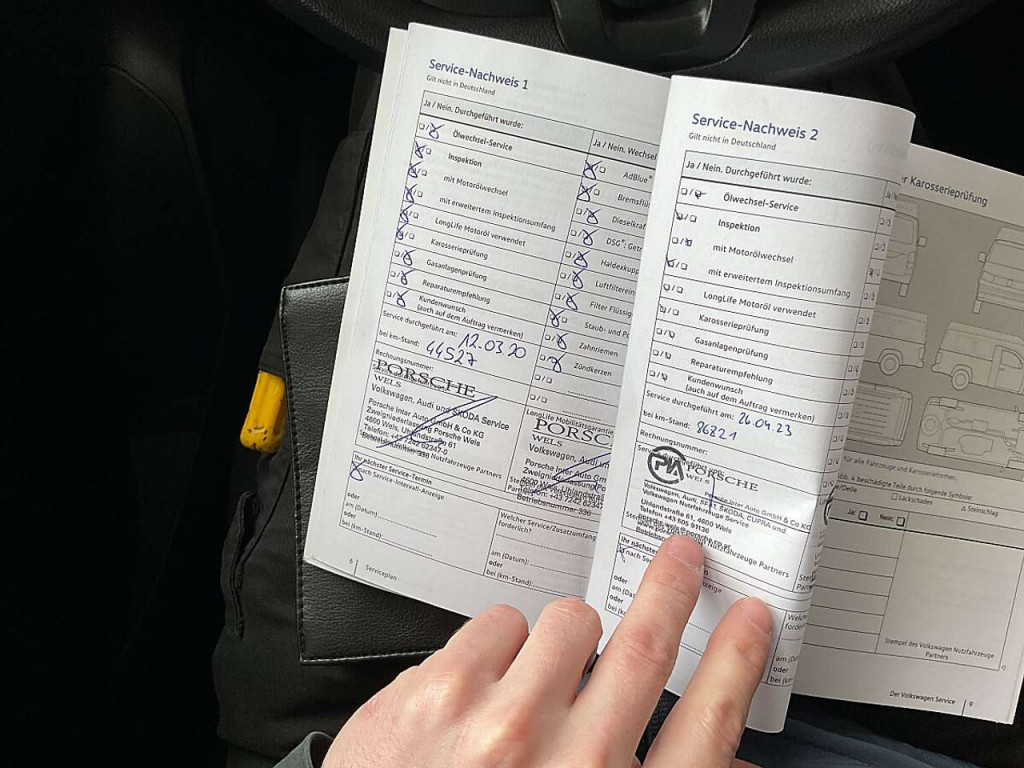 Service-Nachweis 1
Gilt nicht in Deutschland
Ja / Nein. Durchgeführt wurde:
Ölwechsel-Service
Inspektion
mit Motorölwechsel
mit erweitertem Inspektionsumfang
LongLife Motoröl verwendet
Karosserieprüfung
Gasanlagenprüfung
Reparaturempfehlung
Kundenwunsch
(auch auf dem Auftrag vermerken)
Service durchgeführt am: 12.03.20
bei km-Stand: 44527
Rechnungsnummer:
PORSCHE
WELS
Volkswagen, Audi und SKODA Service
Porsche Inter Auto GmbH & Co KG
Zweigniederlassung Porsche Wels
4600 Wels, Uhlandstraße 61
Telefon: +43 7242 62347-0
Betriebsnummer 336
Nutzfahrzeuge Partners
Ihr nächster Service-Termin
nach Service-Intervall-Anzeige
oder
am (Datum):
oder
bei (km-Stand):
6 Serviceplan
Ja / Nein. Wechsel
AdBlue®
Bremsflü
Dieselkraf
DSG®: Getr
Haldexkupp
Luftfilterein
Filter Flüssig
Staub- und Po
Zahnriemen
Zündkerzen
LongLife Mobilitätsgarantie
PORSC
WELS
Volkswagen, Audi
Porsche Inter Auto Gm
4600 Wels, Uhlandstraße
Telefon: +43 7242 62347
Betriebsnummer 336
Welcher Service/Zusatzumfang
forderlich?
am (Datum):
oder
bei (km-Stand):
Service-Nachweis 2
Gilt nicht in Deutschland
Ja / Nein. Durchgeführt wurde:
Ölwechsel-Service
Inspektion
mit Motorölwechsel
mit erweitertem Inspektionsumfang
LongLife Motoröl verwendet
Karosserieprüfung
Gasanlagenprüfung
Reparaturempfehlung
Kundenwunsch
(auch auf dem Auftrag vermerken)
Service durchgeführt am: 26.04.23
bei km-Stand: 86821
Rechnungsnummer:
PIA PORSCHE
WELS
Porsche Inter Auto GmbH & Co KG
Volkswagen, Audi, SEAT, SKODA, CUPRA und
Volkswagen Nutzfahrzeuge Service
Uhlandstraße 61, 4600 Wels
Telefon +43 505 91136
Nutzfahrzeuge Partners
Ihr nächster
nach Ser
zeige
oder
am (Da
oder
bei (km
Welche
forderl
am (Da
oder
bei (km
r Karosserieprüfung
für alle Fahrzeuge und Karosserieformen.
bb. 4 beschädigte Teile durch folgende Symbole:
Delle
Lackschaden
Steinschlag
Ja:
Nein:
Stempel des Volkswagen Nutzfahrzeuge
Partners
Der Volkswagen Service 9